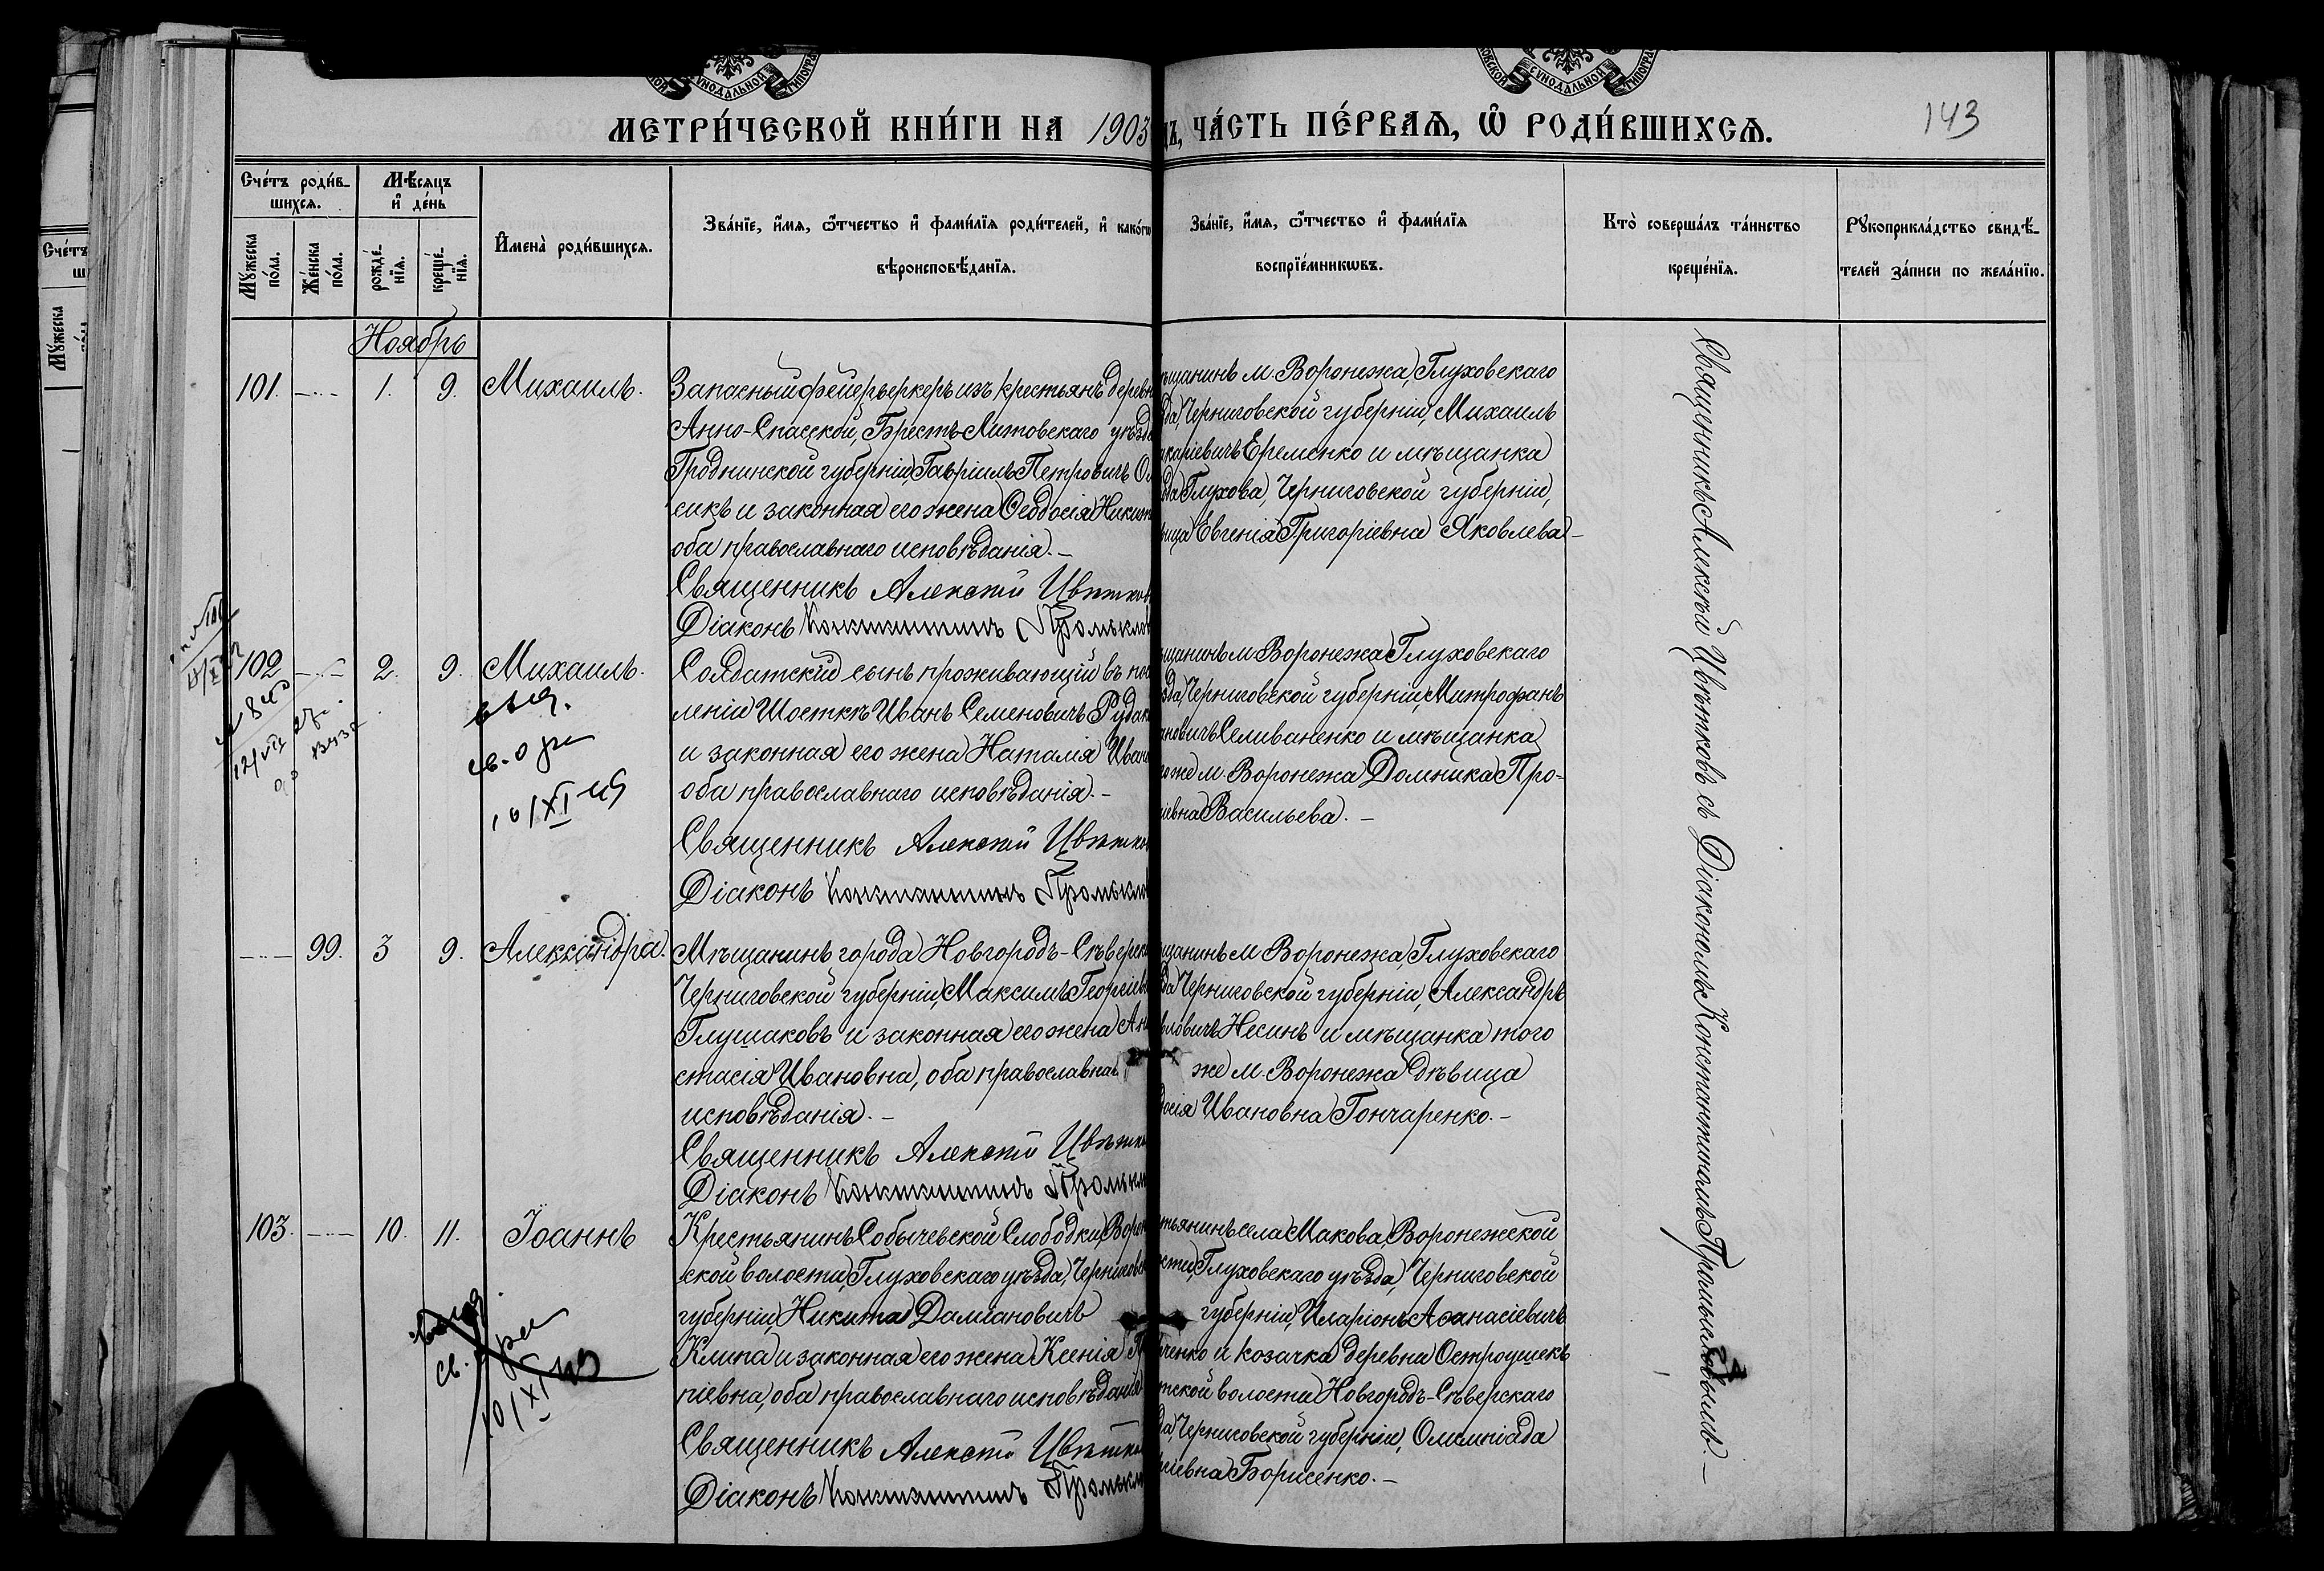 СѴНОДАЛЬНОЙ ТИПОГРА
ОВСКОЙ СѴНОДАЛЬНОЙ ТИПОГРАФ
МЕТРИ́ЧЕСКОЙ КНИ́ГИ НА 1903
ДЪ, ЧА́СТЬ ПЕ́РВАѦ, Ѽ РОДИ́ВШИХСѦ.
143
Сче́тъ роди́в-
шихсѧ.
Мѣ́сѧцъ
и҆ де́нь
Мꙋ́жеска
по́ла.
Же́нска
по́ла.
рожде́-
нїѧ.
креще́-
нїѧ.
И҆мена̀ роди́вшихсѧ.
Зва́нїе, и҆́мѧ, ѻ҆́тчество и҆ фами́лїѧ роди́телей, и҆ како́гѡ
вѣроисповѣ́данїѧ.
Зва́нїе, и҆́мѧ, ѻ҆́тчество и҆ фами́лїѧ
воспрїе́мникѡвъ.
Кто̀ соверша́лъ та́инство
креще́нїѧ.
Рꙋкоприкла́дство свидѣ́-
телей за́писи по жела́нїю.
Сче́тъ
Мꙋ́жеска
Ноябрь
101. 1. 9. Михаилъ.
Запасный фейерверкеръ изъ крестьянъ деревн
Анно-Спасской, Брестъ-Литовскаго уѣзда
Гродненской губерніи, Гавріилъ Петровичъ Ол
сикъ и законная его жена Ѳеодосія Никит
оба православнаго исповѣданія.-
Священникъ Алексій Цвѣтков
Діаконъ Константинъ Промыслов
щанинъ м. Воронежа, Глуховскаго
да, Черниговской губерніи, Михаилъ
каріевичъ Еременко и мѣщанка
да Глухова, Черниговской губерніи,
вица Евгенія Григоріевна Яковлева.-
102 2. 9. Михаилъ.
Солдатскій сынъ проживающій въ по
леніи Шосткѣ Иванъ Семеновичъ Рудак
и законная его жена Наталія Ивано
оба православнаго исповѣданія.-
Священникъ Алексій Цвѣтков
Діаконъ Константинъ Промыслов
щанинъ м. Воронежа Глуховскаго
да, Черниговской губерніи, Митрофанъ
ановичъ Селиваненко и мѣщанка
гоже м. Воронежа Домника Про-
іевна Васильева.-
99. 3 9. Александра.
Мѣщанинъ города Новгородъ-Сѣверск
Черниговской губерніи, Максимъ Георгіев
Глушаковъ и законная его жена Ана
стасія Ивановна, оба православна
исповѣданія.-
Священникъ Алексій Цвѣтк
Діаконъ Константинъ Промысл
щанинъ м. Воронежа, Глуховскаго
да Черниговской губерніи, Александръ
вловичъ Несинъ и мѣщанка того
же м. Воронежа дѣвица
досія Ивановна Гончаренко.-
103. 10. 11. Іоаннъ
Крестьянинъ Собычевской Слободки, Ворон
ской волости, Глуховскаго уѣзда, Черниговс
губерніи, Никита Даміановичъ
Клипа и законная его жена Ксенія
піевна, оба православнаго исповѣданія
Священникъ Алексій Цвѣтк
Діаконъ Константинъ Промысл
тьянинъ села Макова, Воронежской
ости, Глуховскаго уѣзда, Черниговской
губерніи, Иларіонъ Аѳанасіевичъ
ченко и козачка деревни Остроушекъ
тской волости Новгородъ-Сѣверскаго
да Черниговской губерніи, Олимпіада
іевна Борисенко.-
Священникъ Алексѣй Цвѣтковъ съ Діакономъ Константиномъ Промысловымъ.-